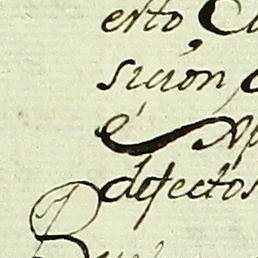 erto C
sicion
é Ap
defectos